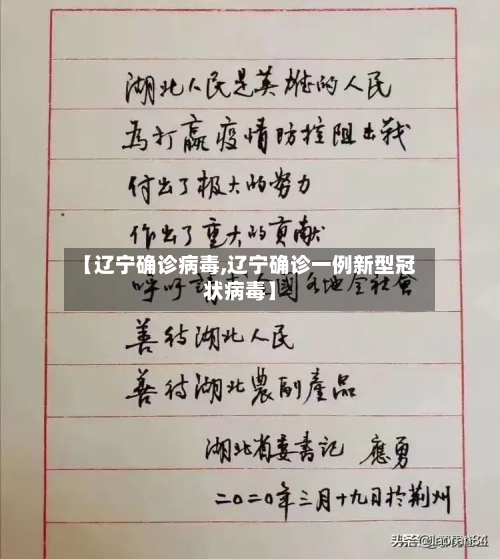 湖北人民是英雄的人民
為打贏疫情防控阻击战
付出了极大的努力
作出了重大的贡献
【辽宁确诊病毒,辽宁确诊一例新型冠
状病毒】
呼吁請全國各地全社會
善待湖北人民
善待湖北農副產品
湖北省委書记 應勇
二〇二〇年三月十九日於荆州
头条@